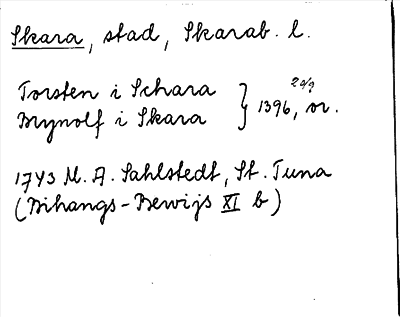 Skara, stad, Skarab. l.
Torsten i Schara } 20/9 1396, or.
Brynolf i Skara
1743 M. A. Sahlstedt, St. Tuna
(Bihangs-Bewijs XI b)